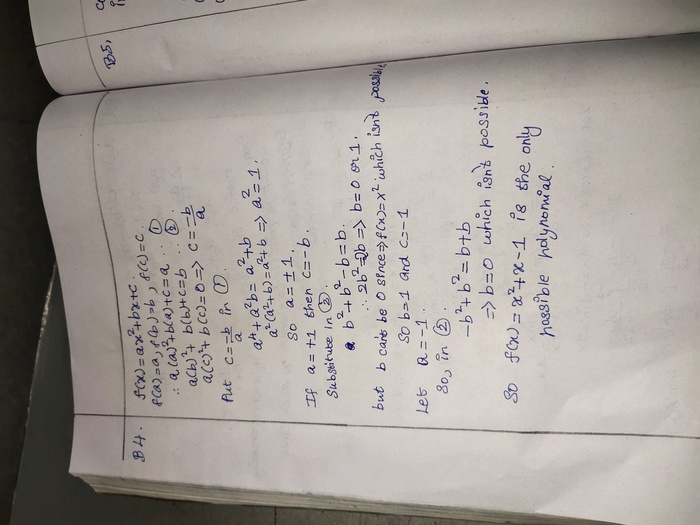 B4.
f(x)=ax²+bx+c.
f(a)=a, f(b)=b, f(c)=c.
∴ a(a)²+b(a)+c=a .. ①
a(b)²+ b(b)+c=b .. ②
a(c)²+ b(c)=0 => c=-b/a
Put c=-b/a in ①.
a⁴+a²b=a²+b
a²(a²+b)=a²+b => a²=1.
So a=±1.
If a=+1 then c=-b.
Substitute in ②.
b²+b²-b=b.
∴ 2b²=2b => b=0 or 1.
but b can't be 0 since => f(x)=x² which isn't possible
So b=1 and c=-1
Let a=-1.
So, in ②.
-b²+b²=b+b
=> b=0 which isn't possible.
So f(x)=x²+x-1 is the only
possible polynomial.
B5,